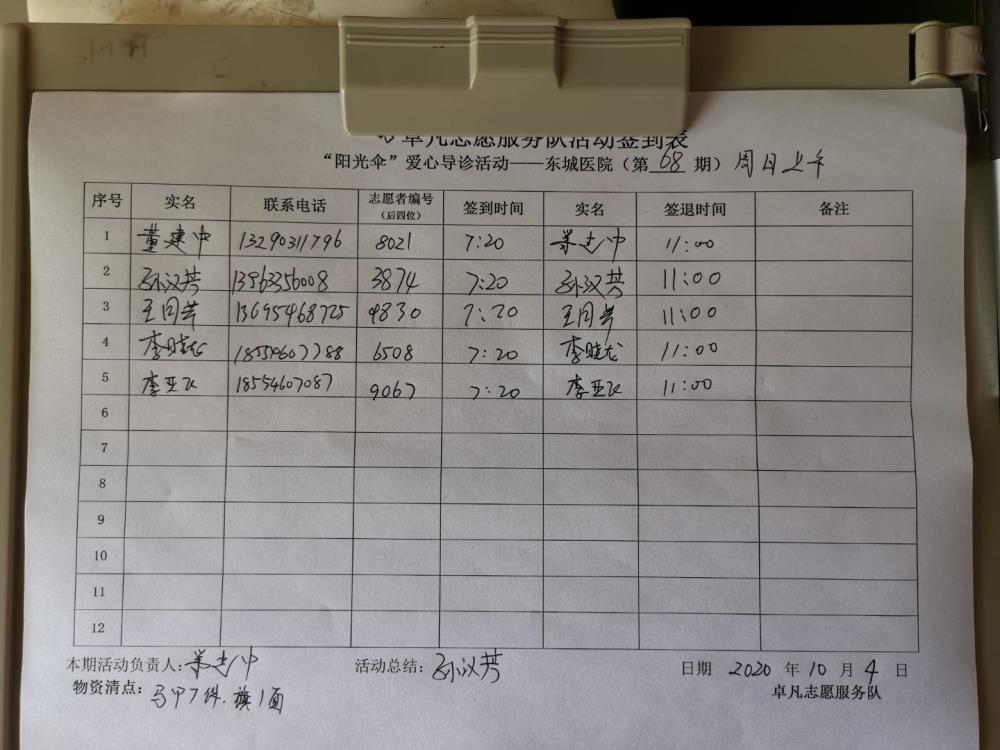 卓凡志愿服务队活动签到表
“阳光伞”爱心导诊活动——东城医院（第 68 期）周日上午
序号 实名 联系电话 志愿者编号（后四位） 签到时间 实名 签退时间 备注
1 董建中 13290311796 8021 7:20 董建中 11:00
2 孙汉芳 13963356008 3874 7:20 孙汉芳 11:00
3 王同芳 13695468725 9830 7:20 王同芳 11:00
4 李晓龙 6508 7:20 李晓龙 11:00
5 李亚飞 18554607087 9067 7:20 李亚飞 11:00
6
7
8
9
10
11
12
本期活动负责人：董建中 活动总结：孙汉芳 日期 2020 年 10 月 4 日
物资清点：马甲7件.旗1面 卓凡志愿服务队